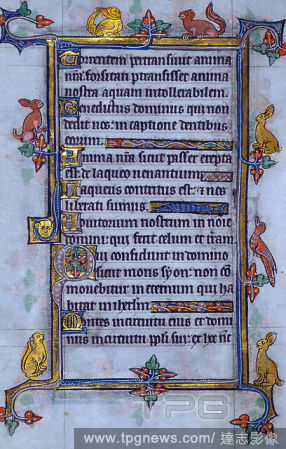 Torrentem pertransivit anima
nrã: forsitan ptransisset anima
nostra aquam intollerabilem.
Benedictus dominus qui non
dedit nos: in captione dentibus
Anima nrã sicut passer erepta
est: de laqueo venantium
Laqueus contritus est: & nos
liberati sumus
Adiutorium nostrum in noie
domini: qui fecit celum et terram
Qui confidunt in domino
sicut mons syon: non cõ
movebitur in eternum qui ha
bitat in iherlm
Montes in circuitu eius et domi
nus in circuitu ppli sui: ex hc nc̃
PG
www.tpgnews.com/ 達志影像